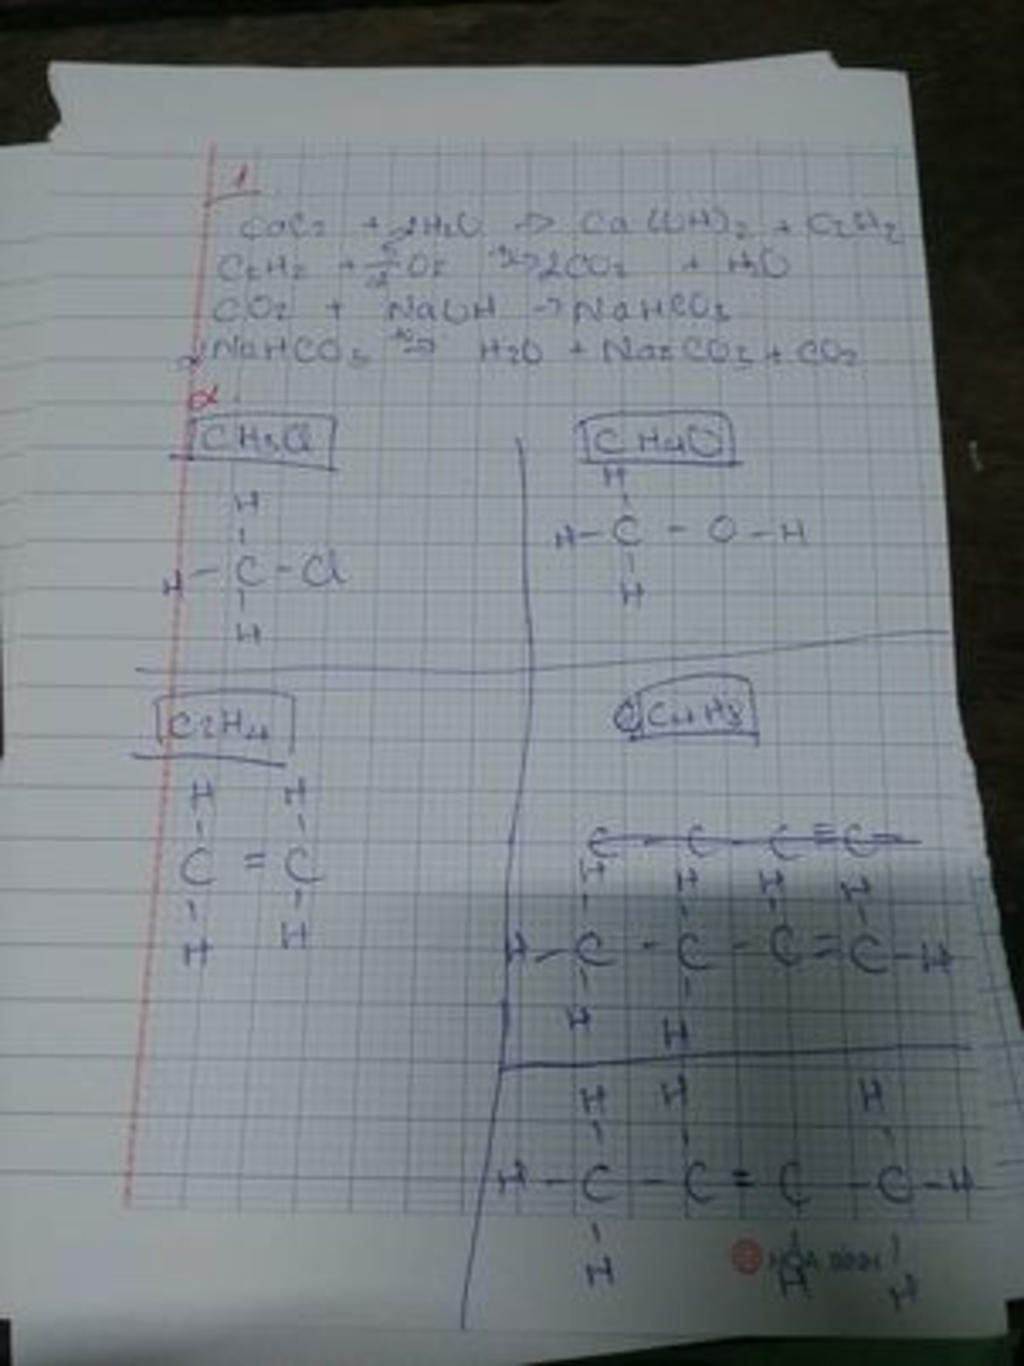 1
CaC2 + 2H2O → Ca(OH)2 + C2H2
C2H2 + 5/2 O2 → 2CO2 + H2O
CO2 + NaOH → NaHCO3
2NaHCO3 → H2O + Na2CO3 + CO2
2.
CH3Cl
H
H - C - Cl
H
CH4O
H
H - C - O - H
H
C2H4
H H
C = C
H H
C4H8
C - C - C = C
H H H H
H - C - C - C = C - H
H H
H H H
H - C - C = C - C - H
H H H